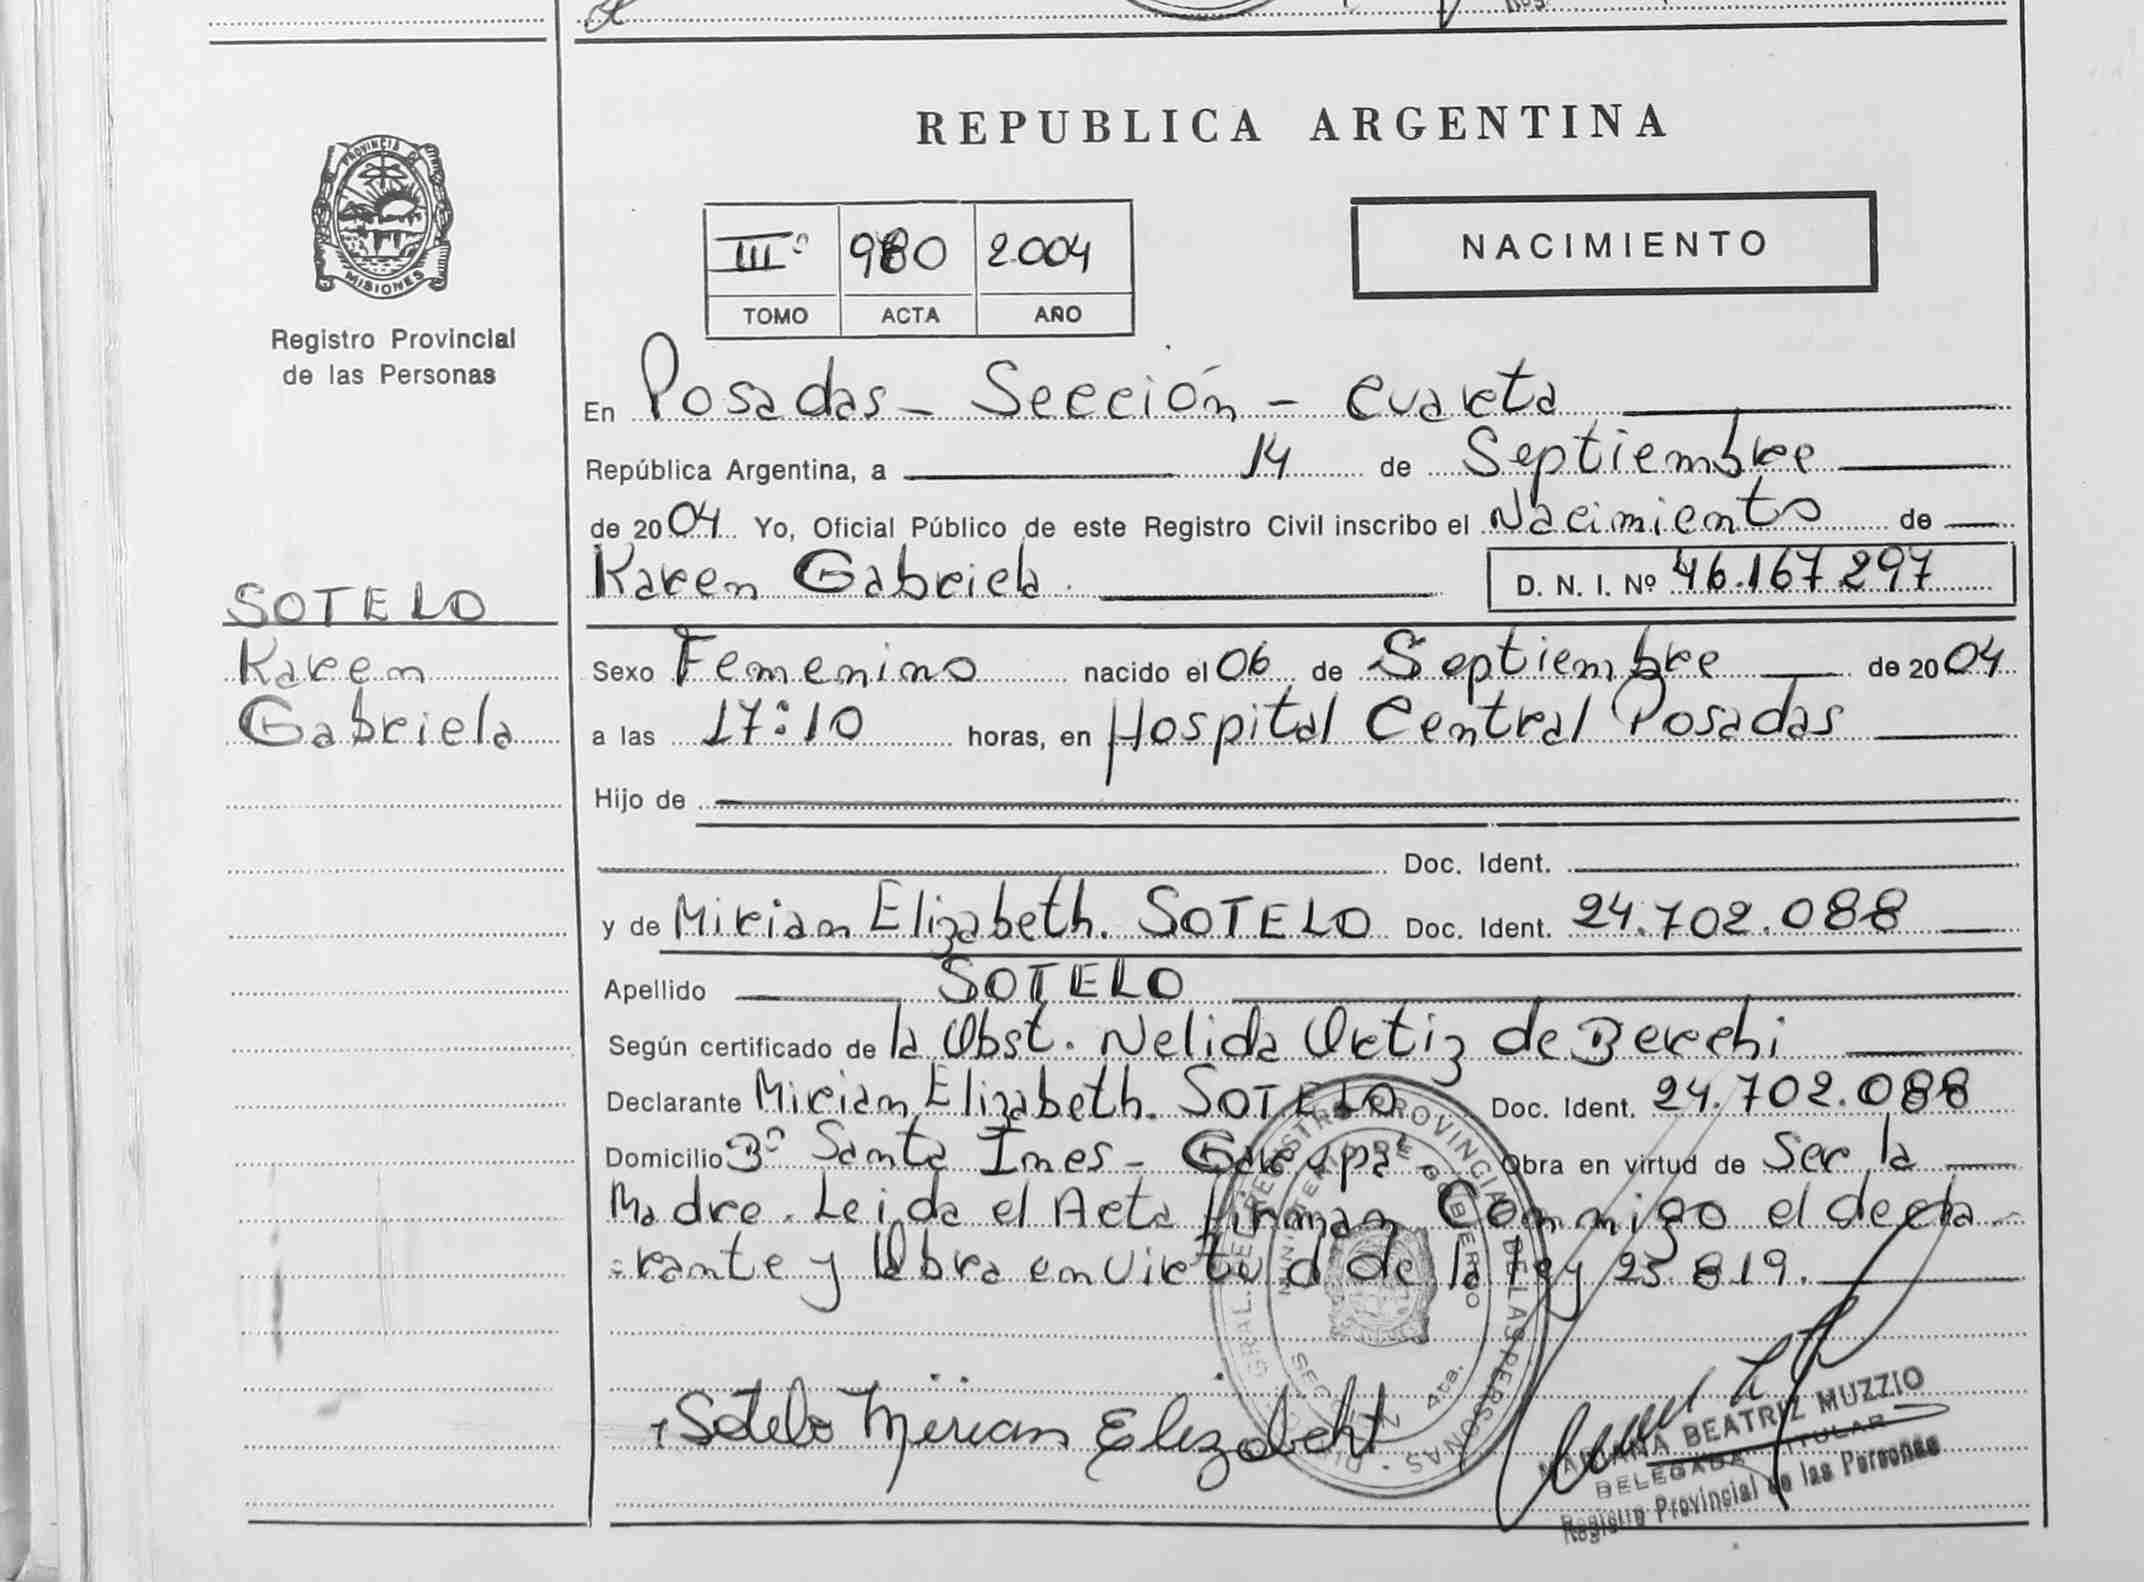 REPUBLICA ARGENTINA
PROVINCIA DE
MISIONES
Registro Provincial
de las Personas
IIIº 980 2004
TOMO ACTA AÑO
NACIMIENTO
En Posadas - Sección - Cuarta
República Argentina, a 14 de Septiembre
de 2004 Yo, Oficial Público de este Registro Civil inscribo el Nacimiento de
Karen Gabriela. D. N. I. Nº 46.167.297
SOTELO
Karen
Gabriela
Sexo Femenino nacido el 06 de Septiembre de 2004
a las 17:10 horas, en Hospital Central Posadas
Hijo de
Doc. Ident.
y de Mirian Elizabeth. SOTELO Doc. Ident. 24.702.088
Apellido SOTELO
Según certificado de la Obst. Nelida Ortiz de Berechi
Declarante Mirian Elizabeth. SOTELO Doc. Ident. 24.702.088
Domicilio Bº Santa Ines - Garupá Obra en virtud de Ser la
Madre. Leida el Acta firman Conmigo el decla-
rante y Obra en Virtud de la ley 25.819.
DIREC. GRAL. DEL REGISTRO PROVINCIAL DE LAS PERSONAS
MINISTERIO DE GOBIERNO
SECCION 4ta.
Sotelo Mirian Elizabeht
MARIANA BEATRIZ MUZZIO
DELEGADA TITULAR
Registro Provincial de las Personas